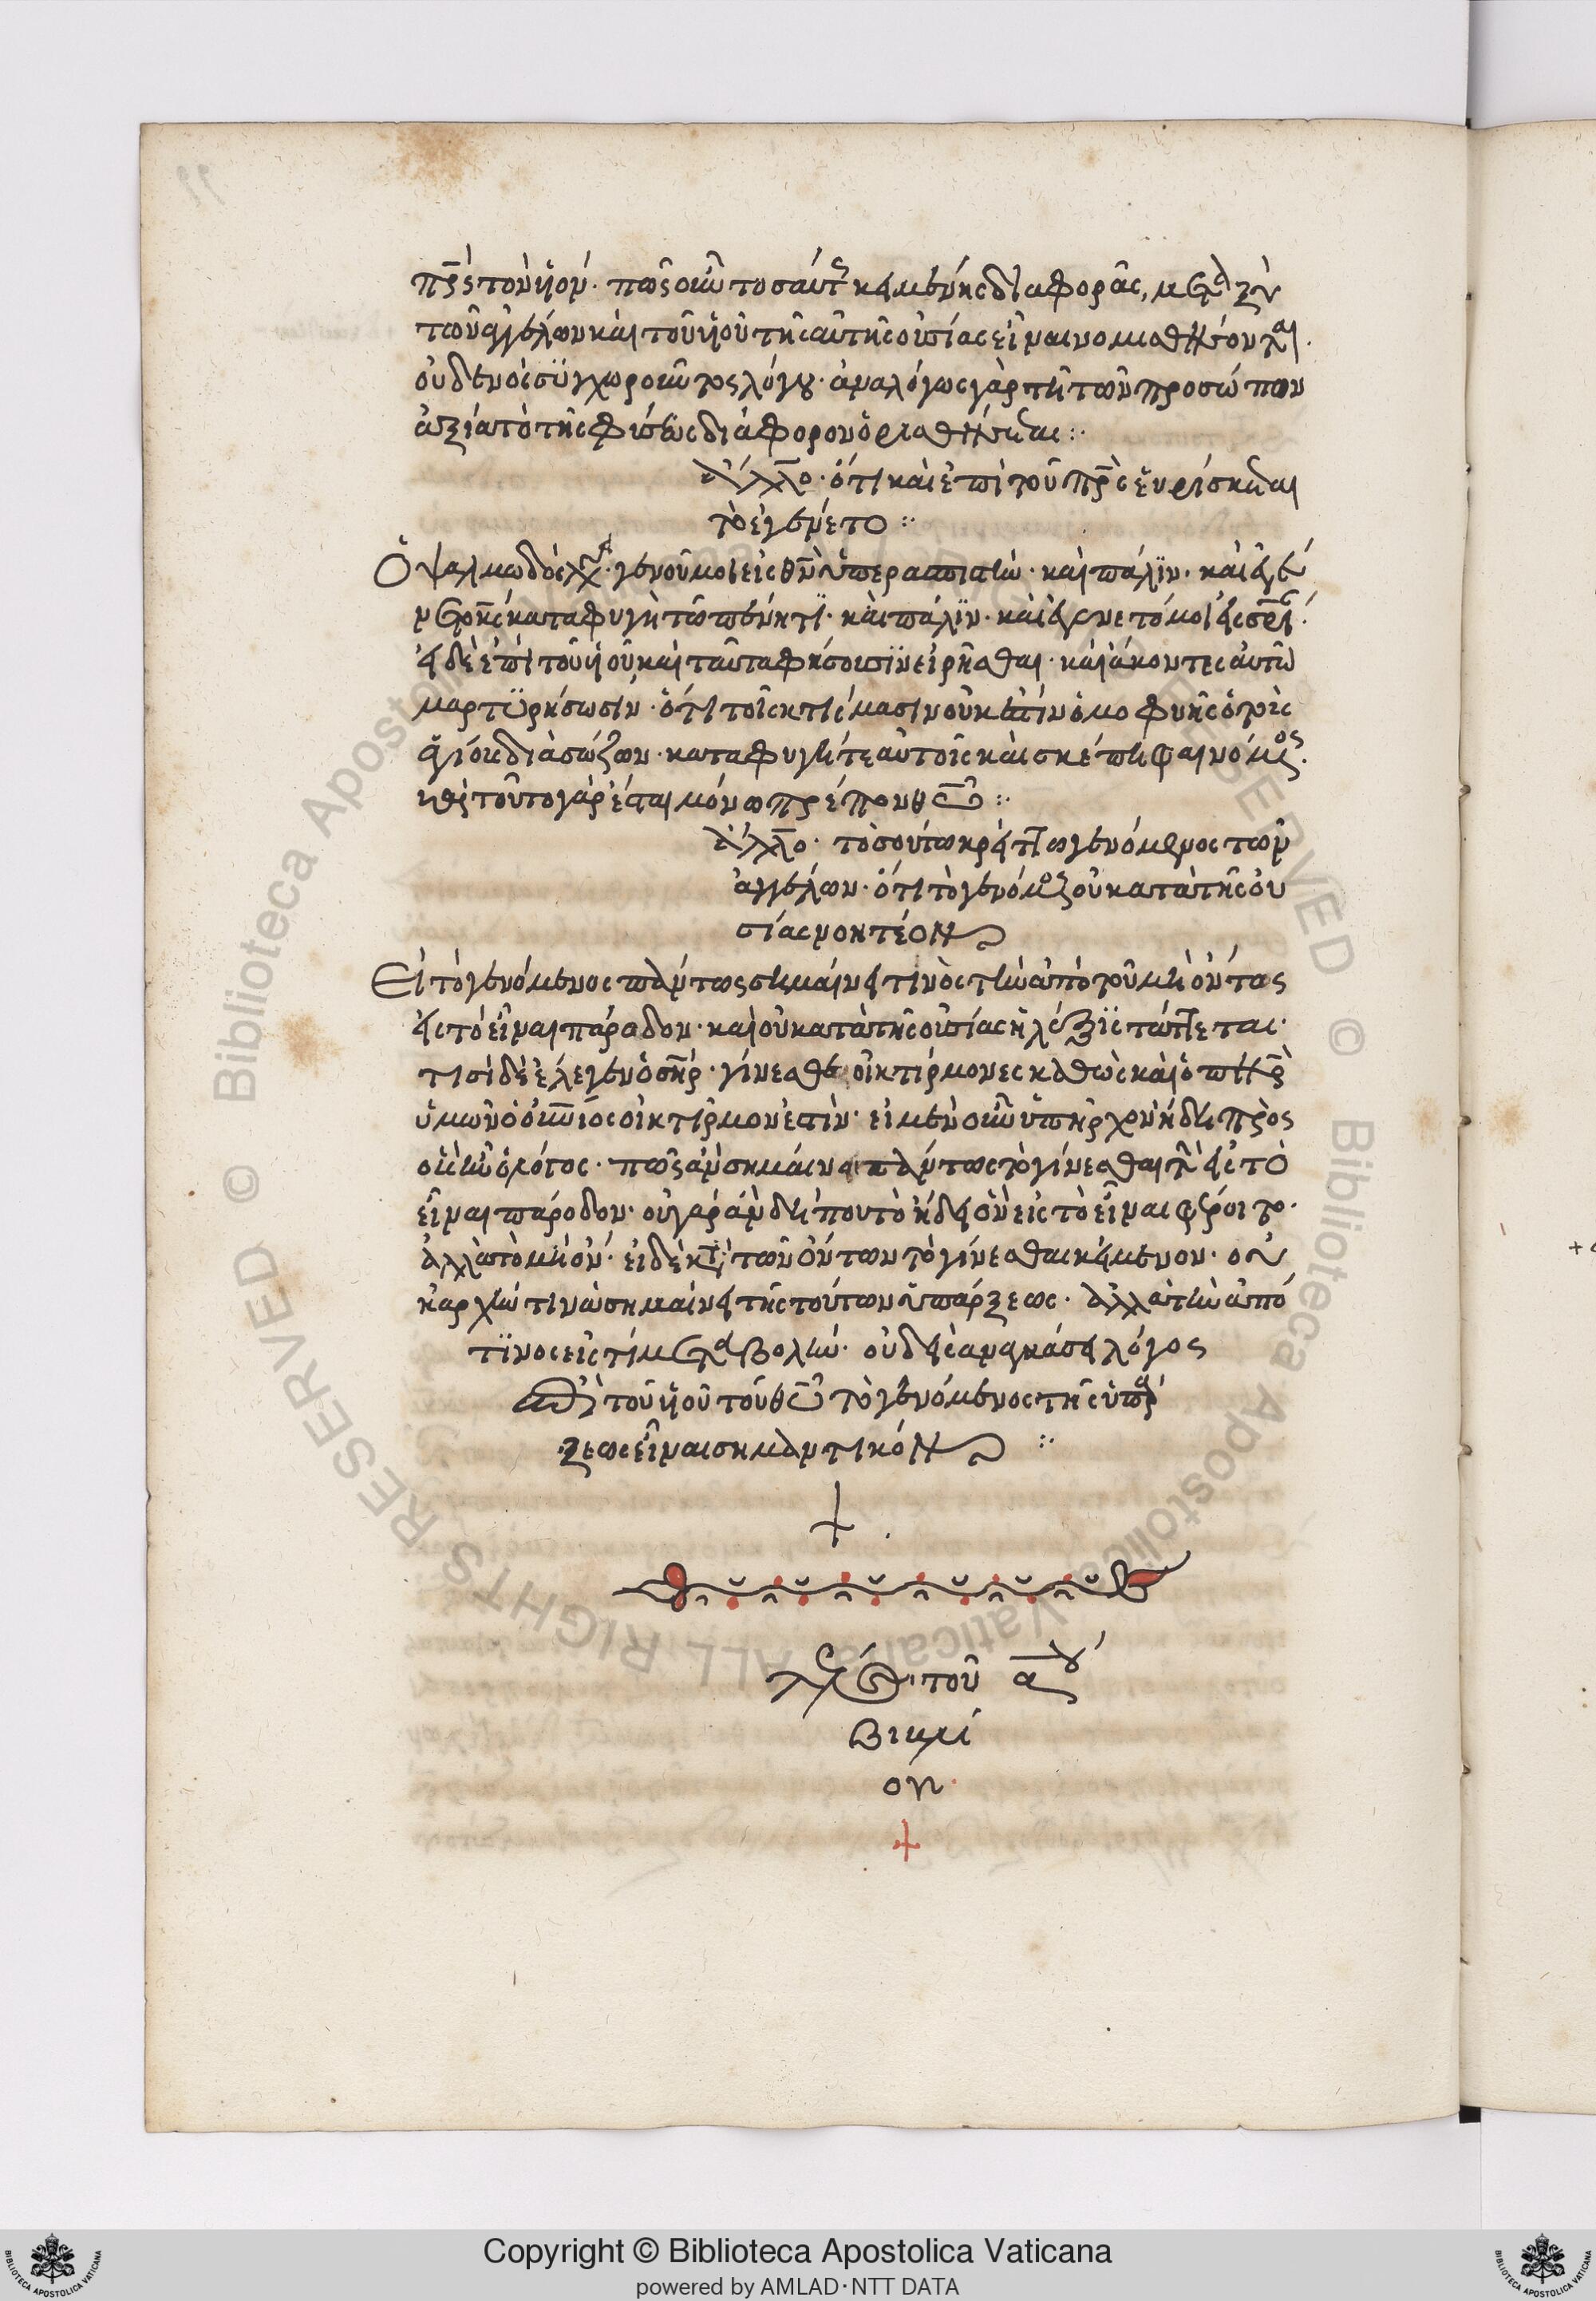 πρὸς τὸν υἱόν. πῶς οὖν τοσαύτης κειμένης διαφορᾶς, μεταξὺ
τῶν ἀγγέλων καὶ τοῦ υἱοῦ τῆς αὐτῆς οὐσίας εἶναι νομισθήσονται.
οὐδενὸς συγχωροῦντος λόγου. ἀναλόγως γὰρ τῆ τῶν προσώπων
ἀξία τὸ τῆς φύσεως διάφορον ὁρισθήσεται :
Ἄλλο. ὅτι καὶ ἐπὶ τοῦ πρς εὑρίσκεται
τὸ ἐγένετο :
Ὁ ψαλμωδὸς λέγει. γενοῦ μοι εἰς θν ὑπερασπιστὴν. καὶ πάλιν. καὶ ἐγέ
νετο κς καταφυγὴ τῶ πένητι. καὶ πάλιν. καὶ ἐγένετό μοι εἰς σρίαν.
εἰ δὲ ἐπὶ τοῦ υἱοῦ καὶ ταῦτα φήσουσιν εἰρῆσθαι. καὶ ἄκοντες αὐτῶ
μαρτυρήσωσιν. ὅτι τοῖς κτίσμασιν οὐκ ἔστιν ὁμοφυὴς ὁ τοὺς
ἁγίους διασώζων. καταφυγή τε αὐτοῖς καὶ σκέπη φαινόμενος.
καὶ τοῦτο γὰρ ἔσται μόνω πρέπον θω :
Ἄλλο. τὸ τοσούτω κρείττω γενόμενος τῶν
ἀγγέλων. ὅτι τὸ γενόμενος οὐ κατὰ τῆς οὐ
σίας νοητέον
Εἰ τὸ γενόμενος πάντως σημαίνει τινὸς τὴν ἀπὸ τοῦ μὴ ὄντος
εἰς τὸ εἶναι πάροδον. καὶ οὐ κατὰ τῆς οὐσίας ἡ λέξις τάττεται.
τισὶ δὲ ἔλεγεν ὁ σηρ. γίνεσθε οἰκτίρμονες καθὼς καὶ ὁ πηρ
ὑμῶν ὁ οὐνιος οἰκτίρμον ἐστίν. εἰ μὲν οὖν ὑπῆρχον ἤδη πρὸς
οὓς ἦν ὁ λόγος. πῶς ἂν σημαίνει πάντως τὸ γίνεσθαι τὴν εἰς τὸ
εἶναι πάροδον. οὐ γὰρ ἂν δήπου τὸ ἤδη ὂν εἰς τὸ εἶναι φέροιτο.
ἀλλὰ τὸ μὴ ὄν. εἰ δὲ κατὰ τῶν ὄντων τὸ γίνεσθαι κείμενον. οὐ
κ ἀρχήν τινα σημαίνει τῆς τούτων ὑπάρξεως. ἀλλὰ τὴν ἀπό
τινος εἰς τί μεταβολήν. οὐδεὶς ἀναγκάσει λόγος
ἐπὶ τοῦ υἱοῦ τοῦ θυ τὸ γενόμενος τῆς ὑπάρ
ξεως εἶναι σημαντικόν :
τέλος τοῦ αου
βιβλί
ου